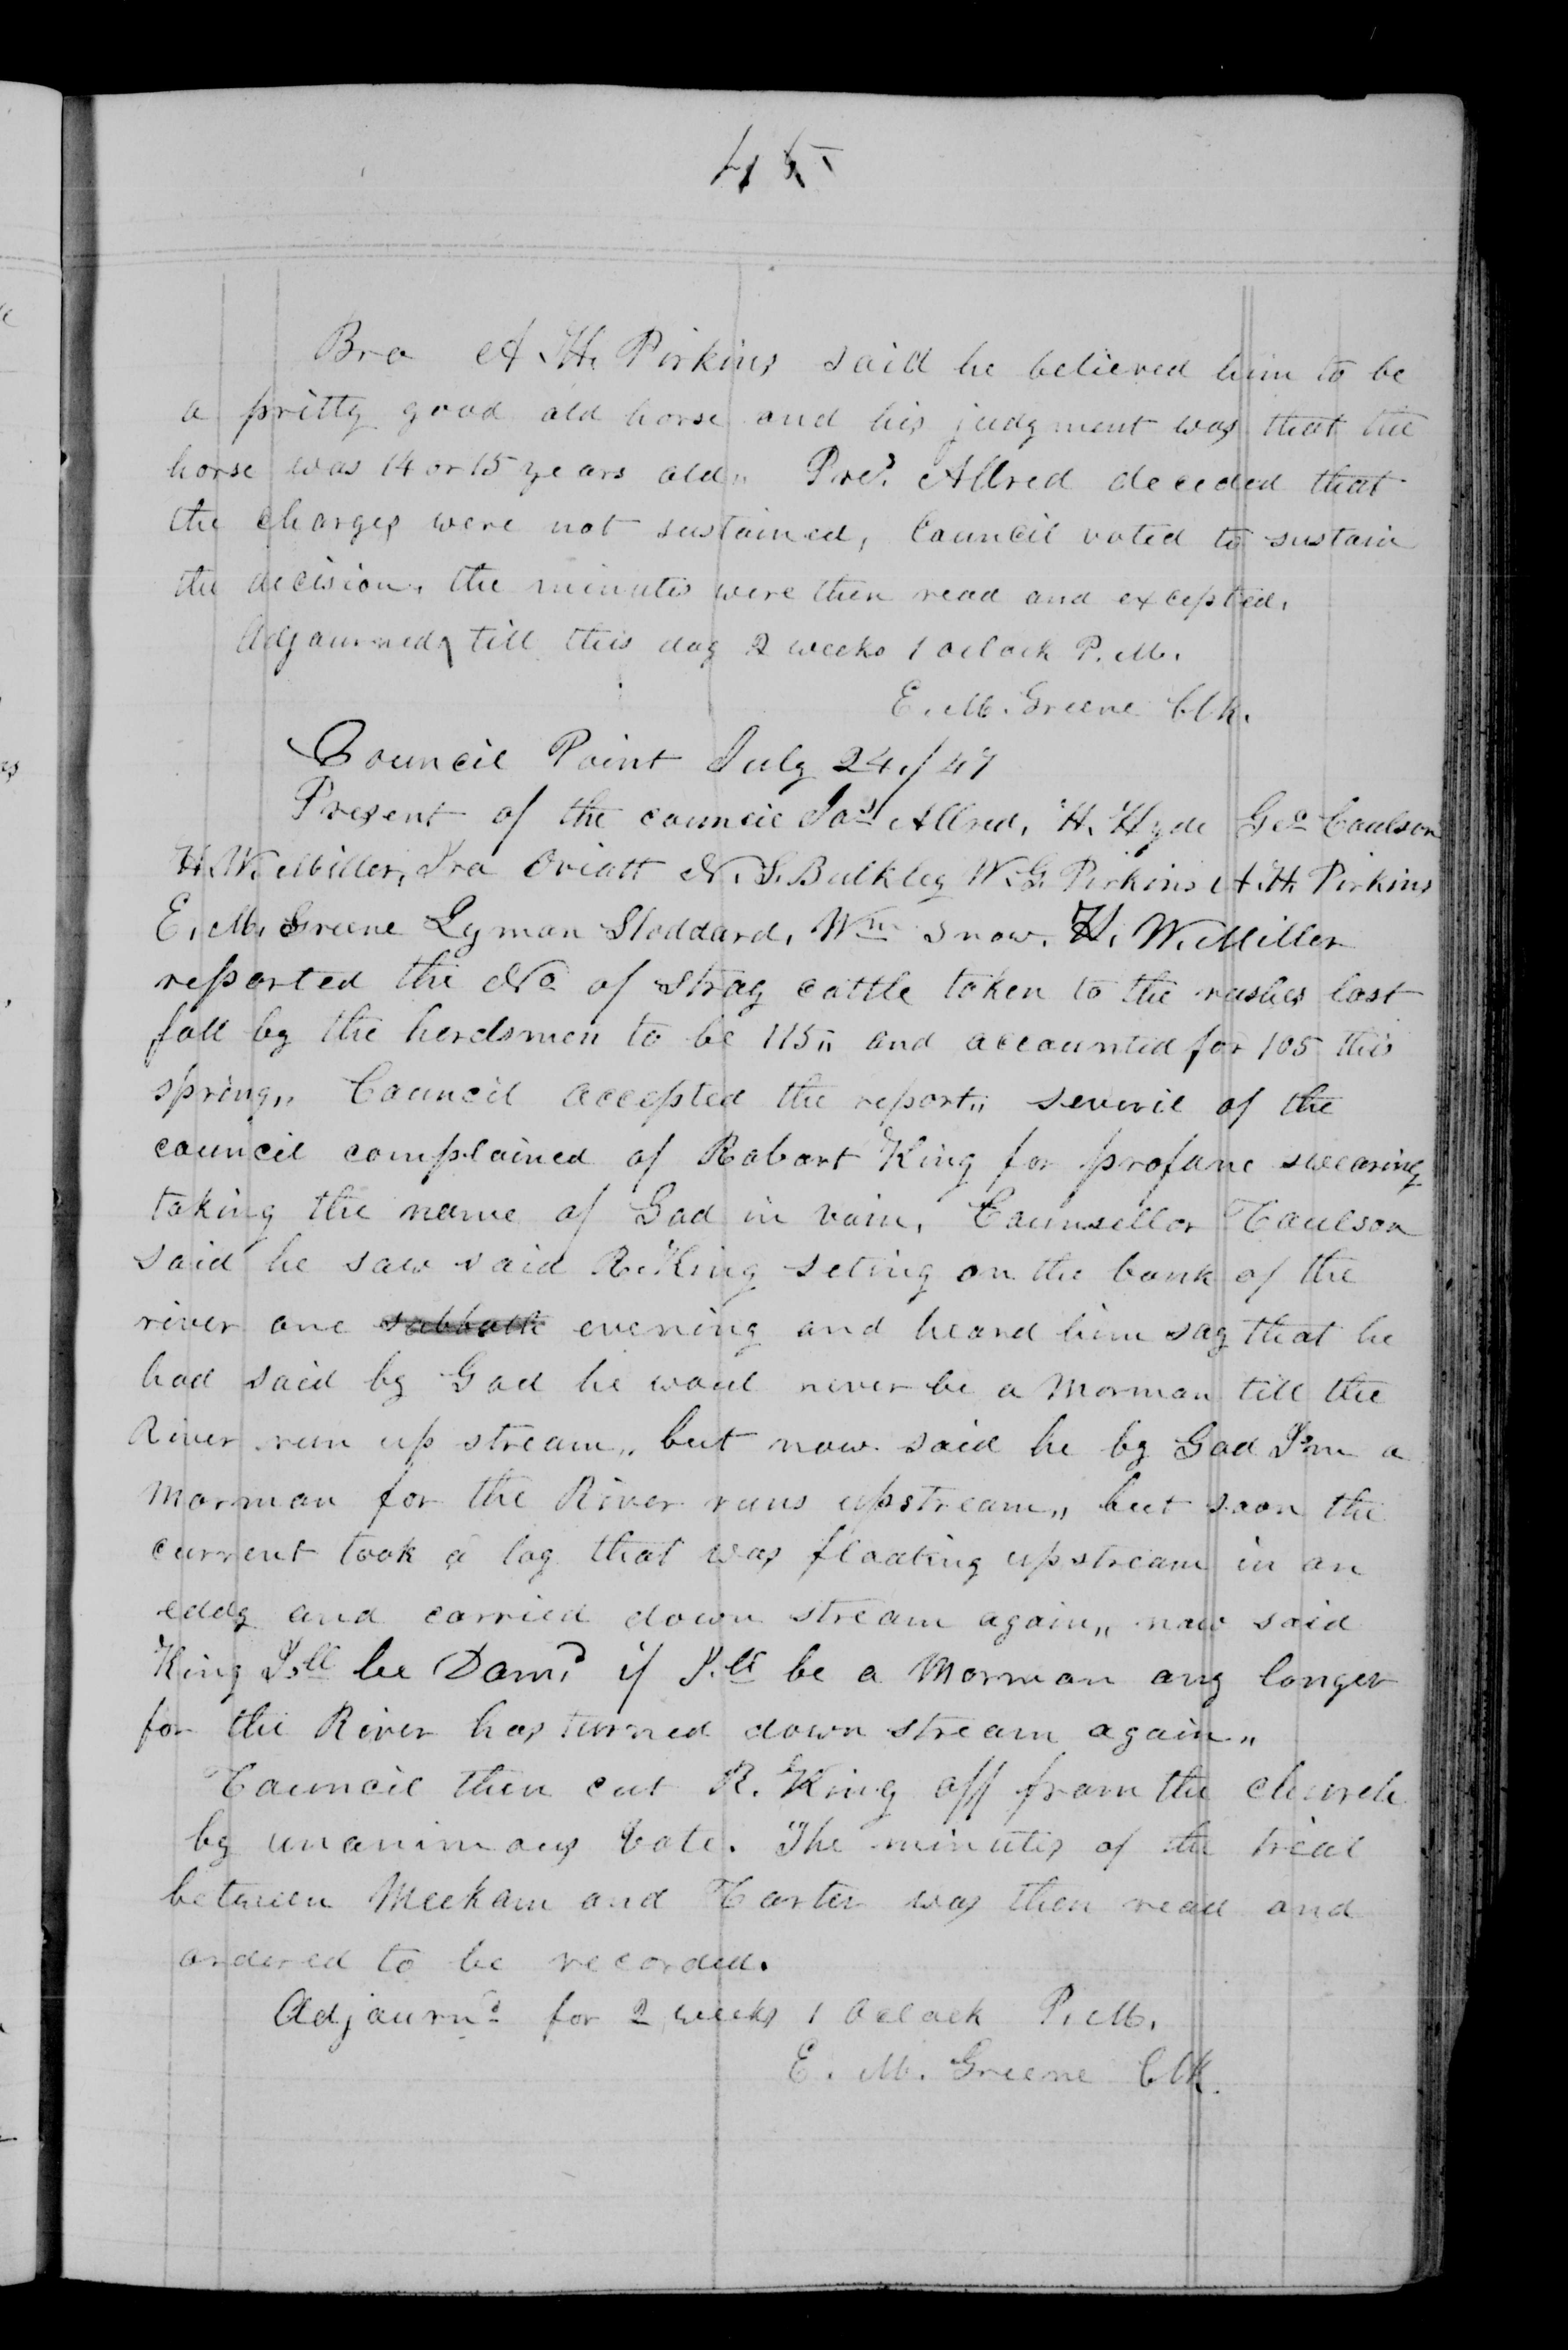 45
Bro A. H. Pirkins said he believed him to be
a pritty good old horse and his judgment was that the
horse was 14 or 15 years old,, Pres. Allred deceded that
the charges were not sustained, Council voted to sustain
the decision. the minutes were then read and excepted.
Adjourned till this day 2 weeks 1 oclock P. M.
E. M. Greene Clk.
Council Point July 24,/47
Present of the council Jas Allred, H. Hyde Geo Coulson
H. W. Miller, Ira Oviatt N. S. Bulkley W. G. Pirkins A. H. Pirkins
E. M. Greene Lyman Stoddard, Wm Snow. H. W. Miller
reported the No of stray cattle taken to the rushes last
fall by the herdsmen to be 115,, and accounted for 105 this
spring,, Council accepted the report,, severil of the
council complained of Robart King for profane swearing
taking the name of God in vain. Counsellor Coulson
said he saw said R. King seting on the bank of the
river one sabbath evening and heard him say that he
had said by God he woul never be a Morman till the
River run up stream,, but now said he by God I'm a
Morman for the River runs upstream,, but soon the
current took a log that was floating upstream in an
eddy and carried down stream again,, now said
King I'll be Damd if I'll be a Morman any longer
for the River has turned down stream again,,
Council then cut R. King off from the church
by unanimous vote. The minutes of the trial
between Meekam and Carter was then read and
ordered to be recorded.
Adjournd for 2 weeks 1 Oclock P. M.
E. M. Greene Clk.